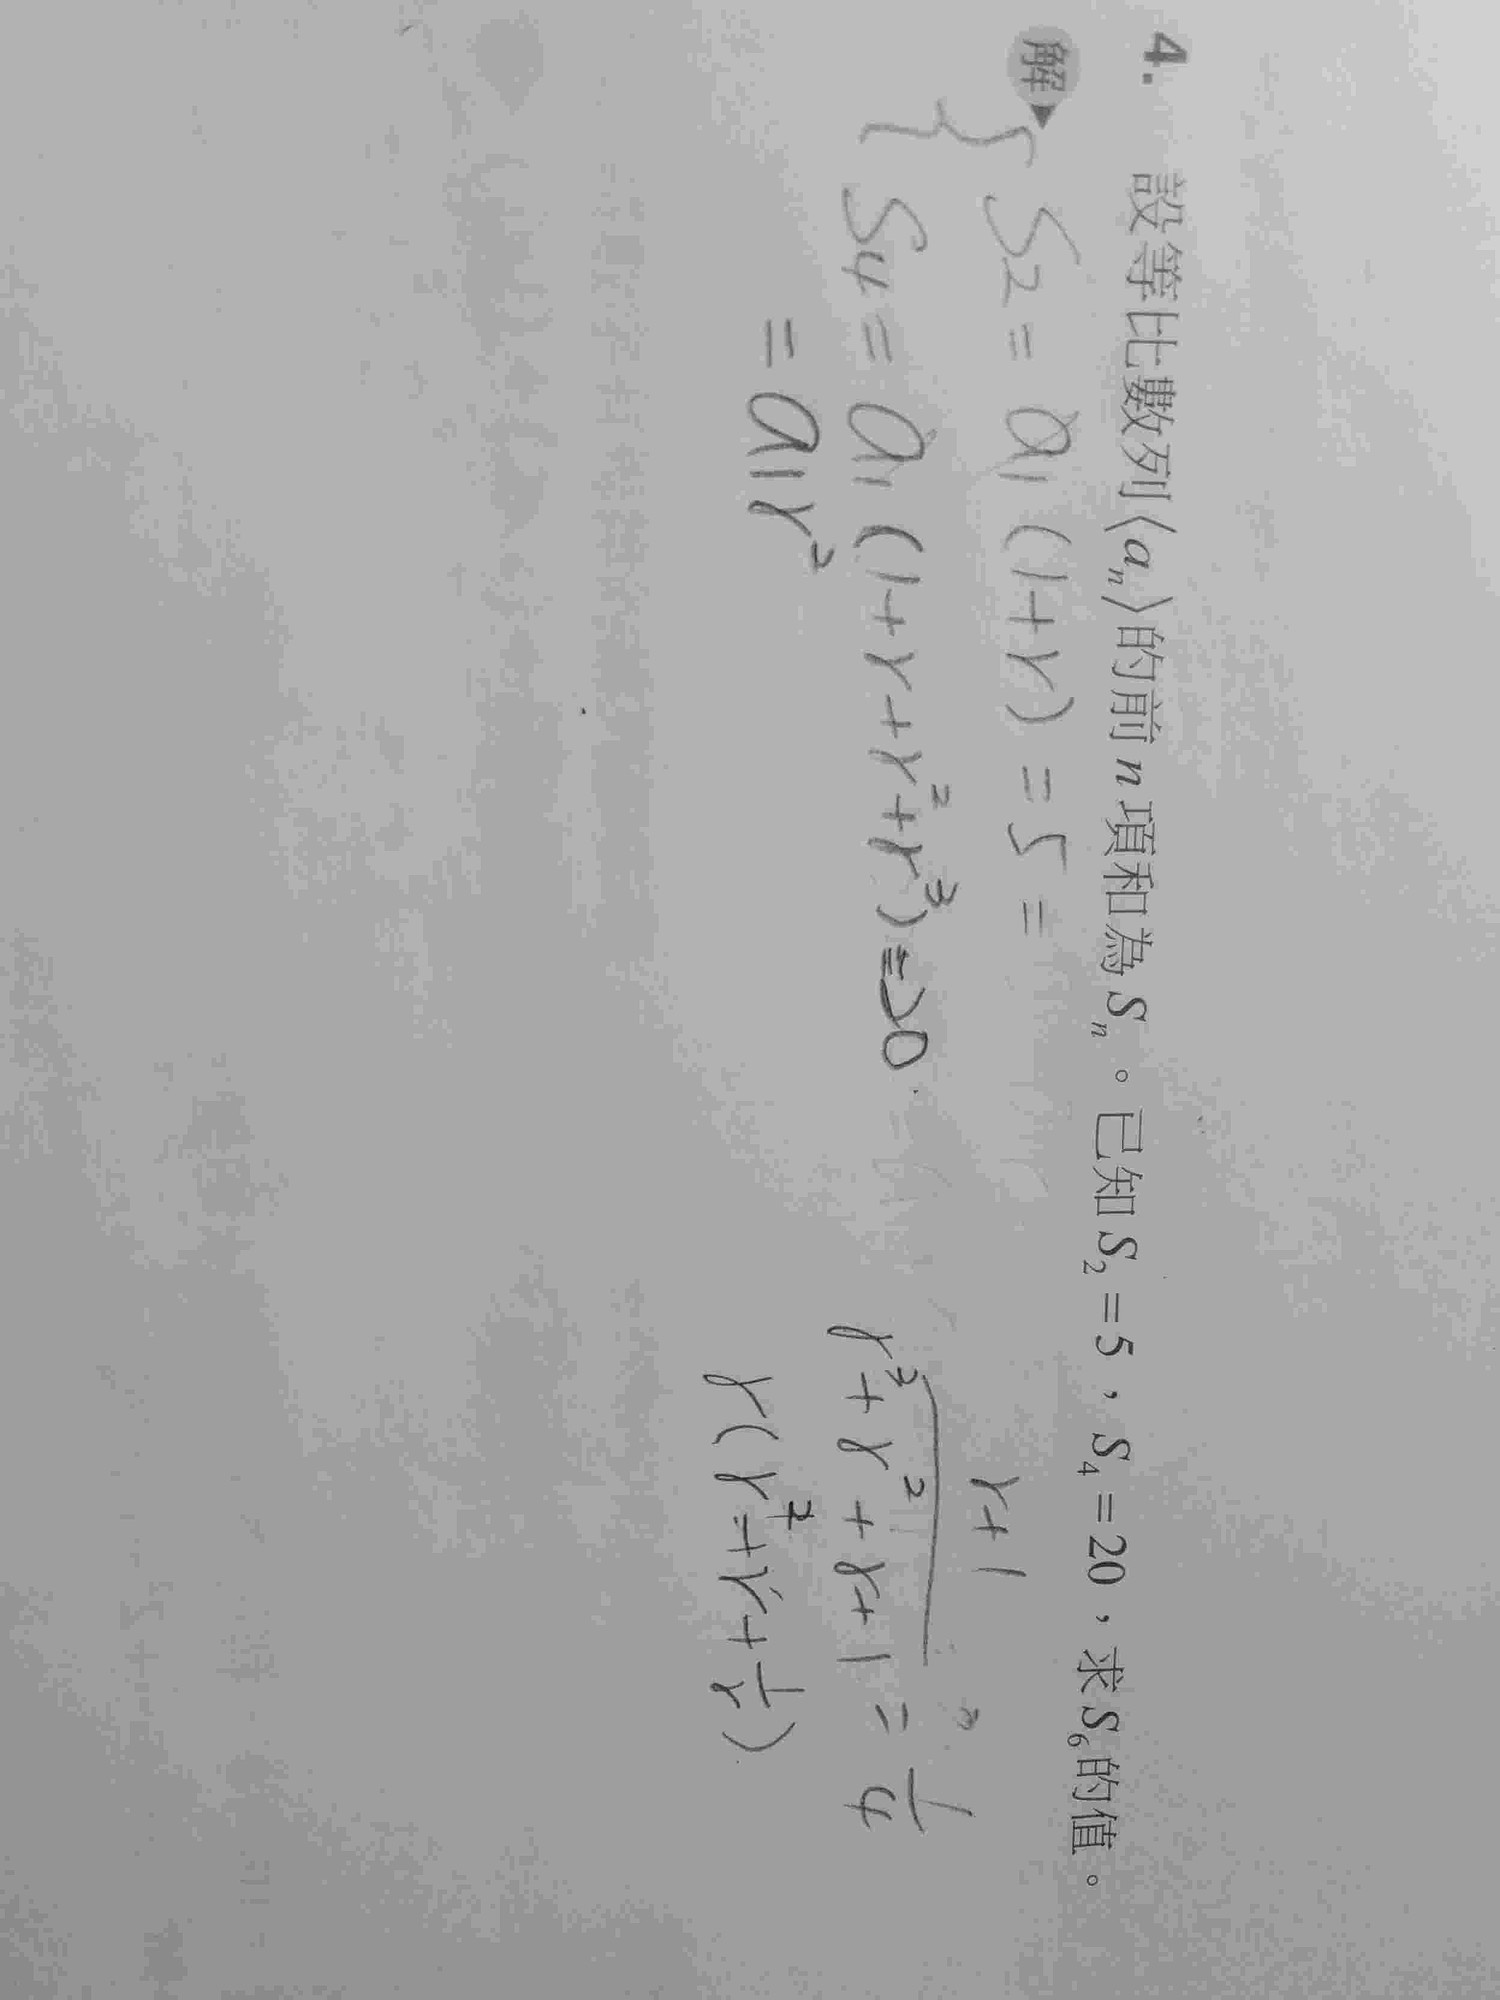 4. 設等比數列⟨aₙ⟩的前 n 項和為 Sₙ。已知 S₂=5，S₄=20，求 S₆ 的值。
解▶
{ S₂ = a₁(1+r) = 5 =
S₄ = a₁(1+r+r²+r³) = 20
= a₁r²
r+1
r²+r²+r+1 = 1/4
r(r²+r+1/r)